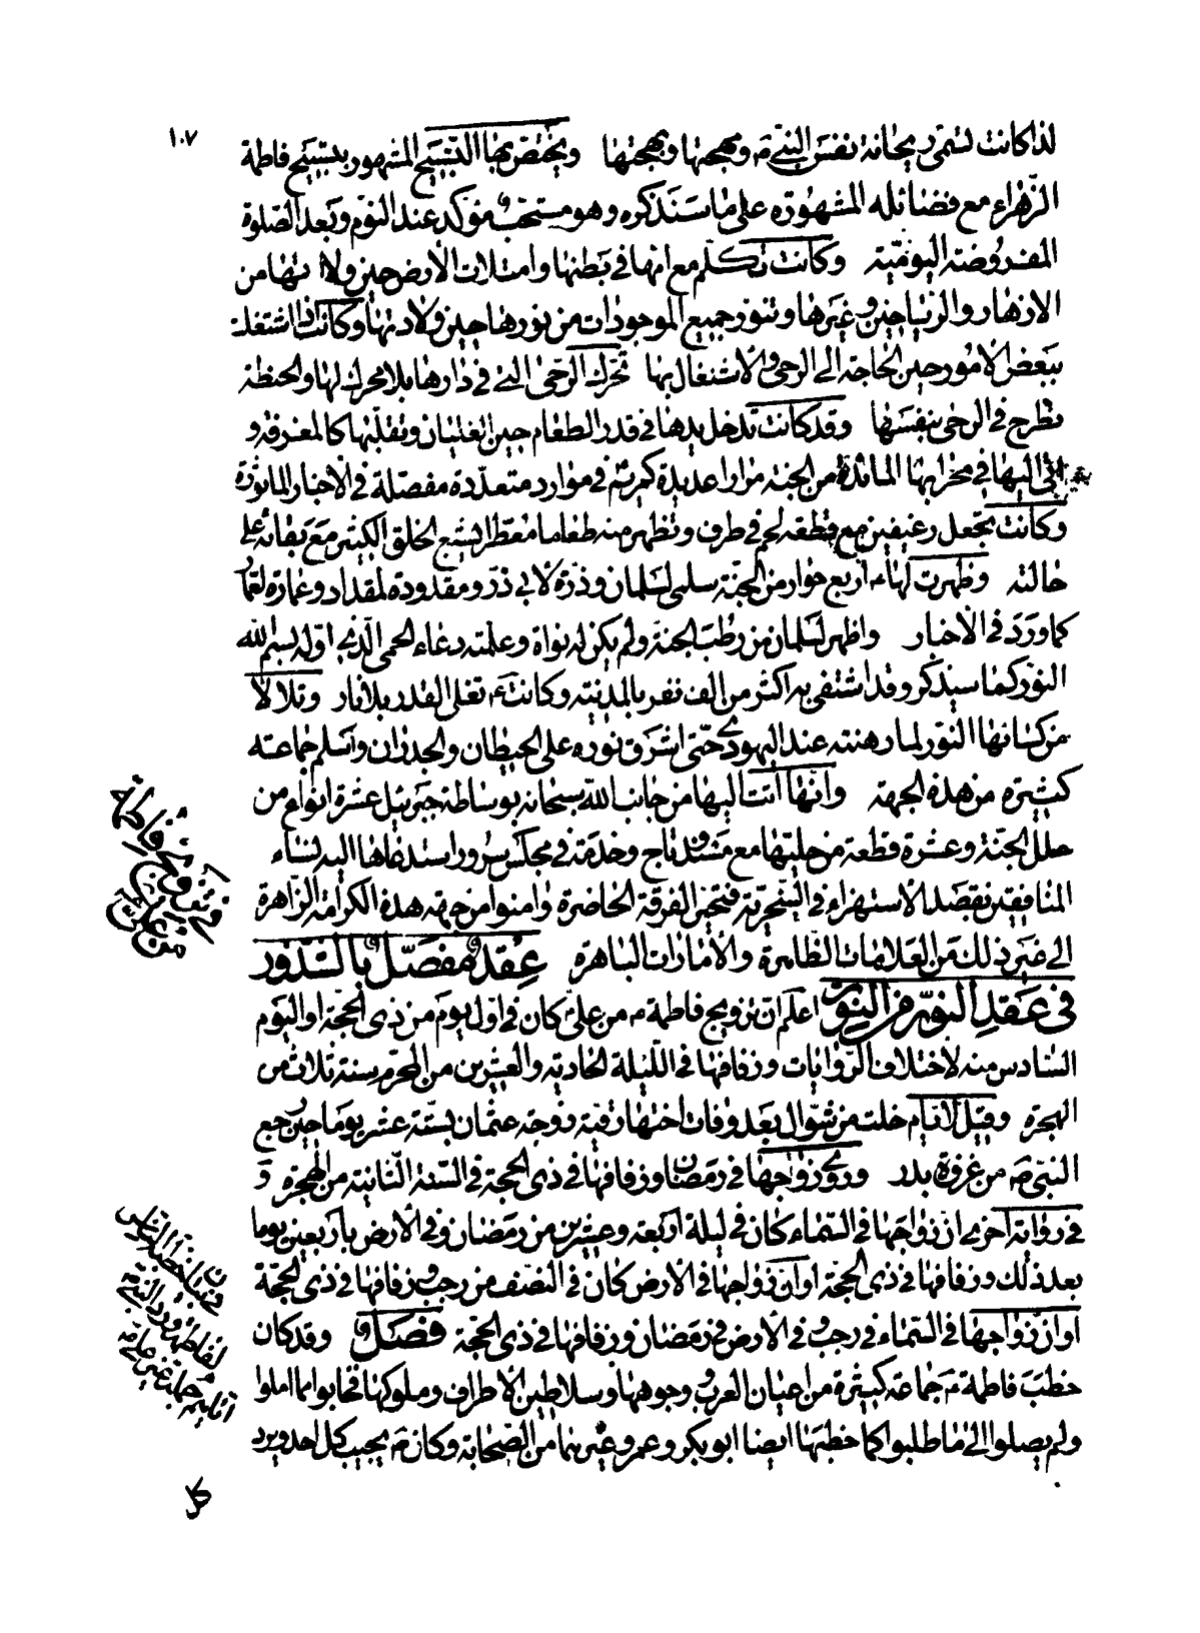 ١٠٧
لذا كانت تسمى ريحانة نفس النبي ص ومهجتها وبهجتها ويختص بها التسبيح المشهور بتسبيح فاطمة
الزهراء مع فضائله المشهورة على ما سنذكره وهو مستحب مؤكد عند النوم وبعد الصلوة
المفروضة اليومية وكانت تكلم مع امها في بطنها وامتلات الأرض حين ولادتها من
الازهار والرياحين وغيرها وتنور جميع الموجودات من نورها حين ولادتها وكانت اذا اشتغلت
ببعض الامور حين الحاجة الى الرحى والاشتغال بها تحرك الرحى التي في دارها بلا محرك لها والحنطة
تطرح في الرحى بنفسها وقد كانت تدخل يدها في قدر الطعام حين الغليان وتقلبها كالمغرفة و
اتى اليها في محرابها المائدة من الجنة مرارا عديدة كمريم في موارد متعددة مفصلة في الاخبار الماثورة
وكانت تجعل رغيفين مع قطعة لحم في طرف وتظهر منه طعاما معطرا يشبع الخلق الكثير مع بقائه على
حالته وظهرت لها ع اربع جوار من الجنة سلمى لسلمان وذرة لابي ذر ومقدودة لمقداد وعمارة لعمار
كما ورد في الاخبار واظهر لسلمان من رطب الجنة ولم يكن له نواة وعلمته دعاء الحمى الذي اوله بسم الله
النور كما سيذكر وقد اشتفى به اكثر من الف نفر بالمدينة وكانت ع تغلى القدر بلا نار وتلالا
من كسائها النور لما رهنته عند اليهودي حتى اشرق نوره على الحيطان والجدران واسلم جماعة
كثيرة من هذه الجهة وانها اتت اليها من جانب الله سبحانه بوساطة جبرئيل عشرة انواع من
حلل الجنة وعشرة قطعة من حليتها مع تاج وخدمة في مجلس سرور استدعاها اليه نساء
المنافقين بقصد الاستهزاء في السخرية فتحير الفرقة الحاضرة وامنوا من جهة هذه الكرامة الزاهرة
الى غير ذلك من العلامات الظاهرة والامارات الباهرة عقد مفصل بالشذور
في عقد النور من النور اعلم ان تزويج فاطمة ع من علي ع كان في اول يوم من ذى الحجة او اليوم
السادس منه لاختلاف الروايات وزفافها في الليلة الحادية والعشرين من المحرم سنة ثلاث من
الهجرة وقيل لايام خلت من شوال بعد وفات اختها رقية زوجة عثمان بستة عشر يوما حين رجع
النبي ص من غزوة بدر وروى زواجها في رمضان وزفافها في ذى الحجة في السنة الثانية من الهجرة و
في رواية اخرى ان زواجها في السماء كان في ليلة اربعة وعشرين من رمضان وفي الارض باربعين يوما
بعد ذلك وزفافها في ذى الحجة او ان زواجها في الارض كان في النصف من رجب وزفافها في ذى الحجة
او ان زواجها في السماء في رجب وفي الارض في رمضان وزفافها في ذى الحجة فصل وقد كان
خطب فاطمة ع جماعة كبيرة من اعيان العرب ووجوهها وسلاطين الاطراف وملوكها فخابوا مما املوا
ولم يصلوا الى ما طلبوا كما خطبها ايضا ابو بكر وعمر وغيرهما من الصحابة وكان ص يجيب كل احد ويرد
في تزويج فاطمة
من علي
في بيان خطبة الناس
لفاطمة ورد النبي ص
اياهم جملة غير علي ع
كل